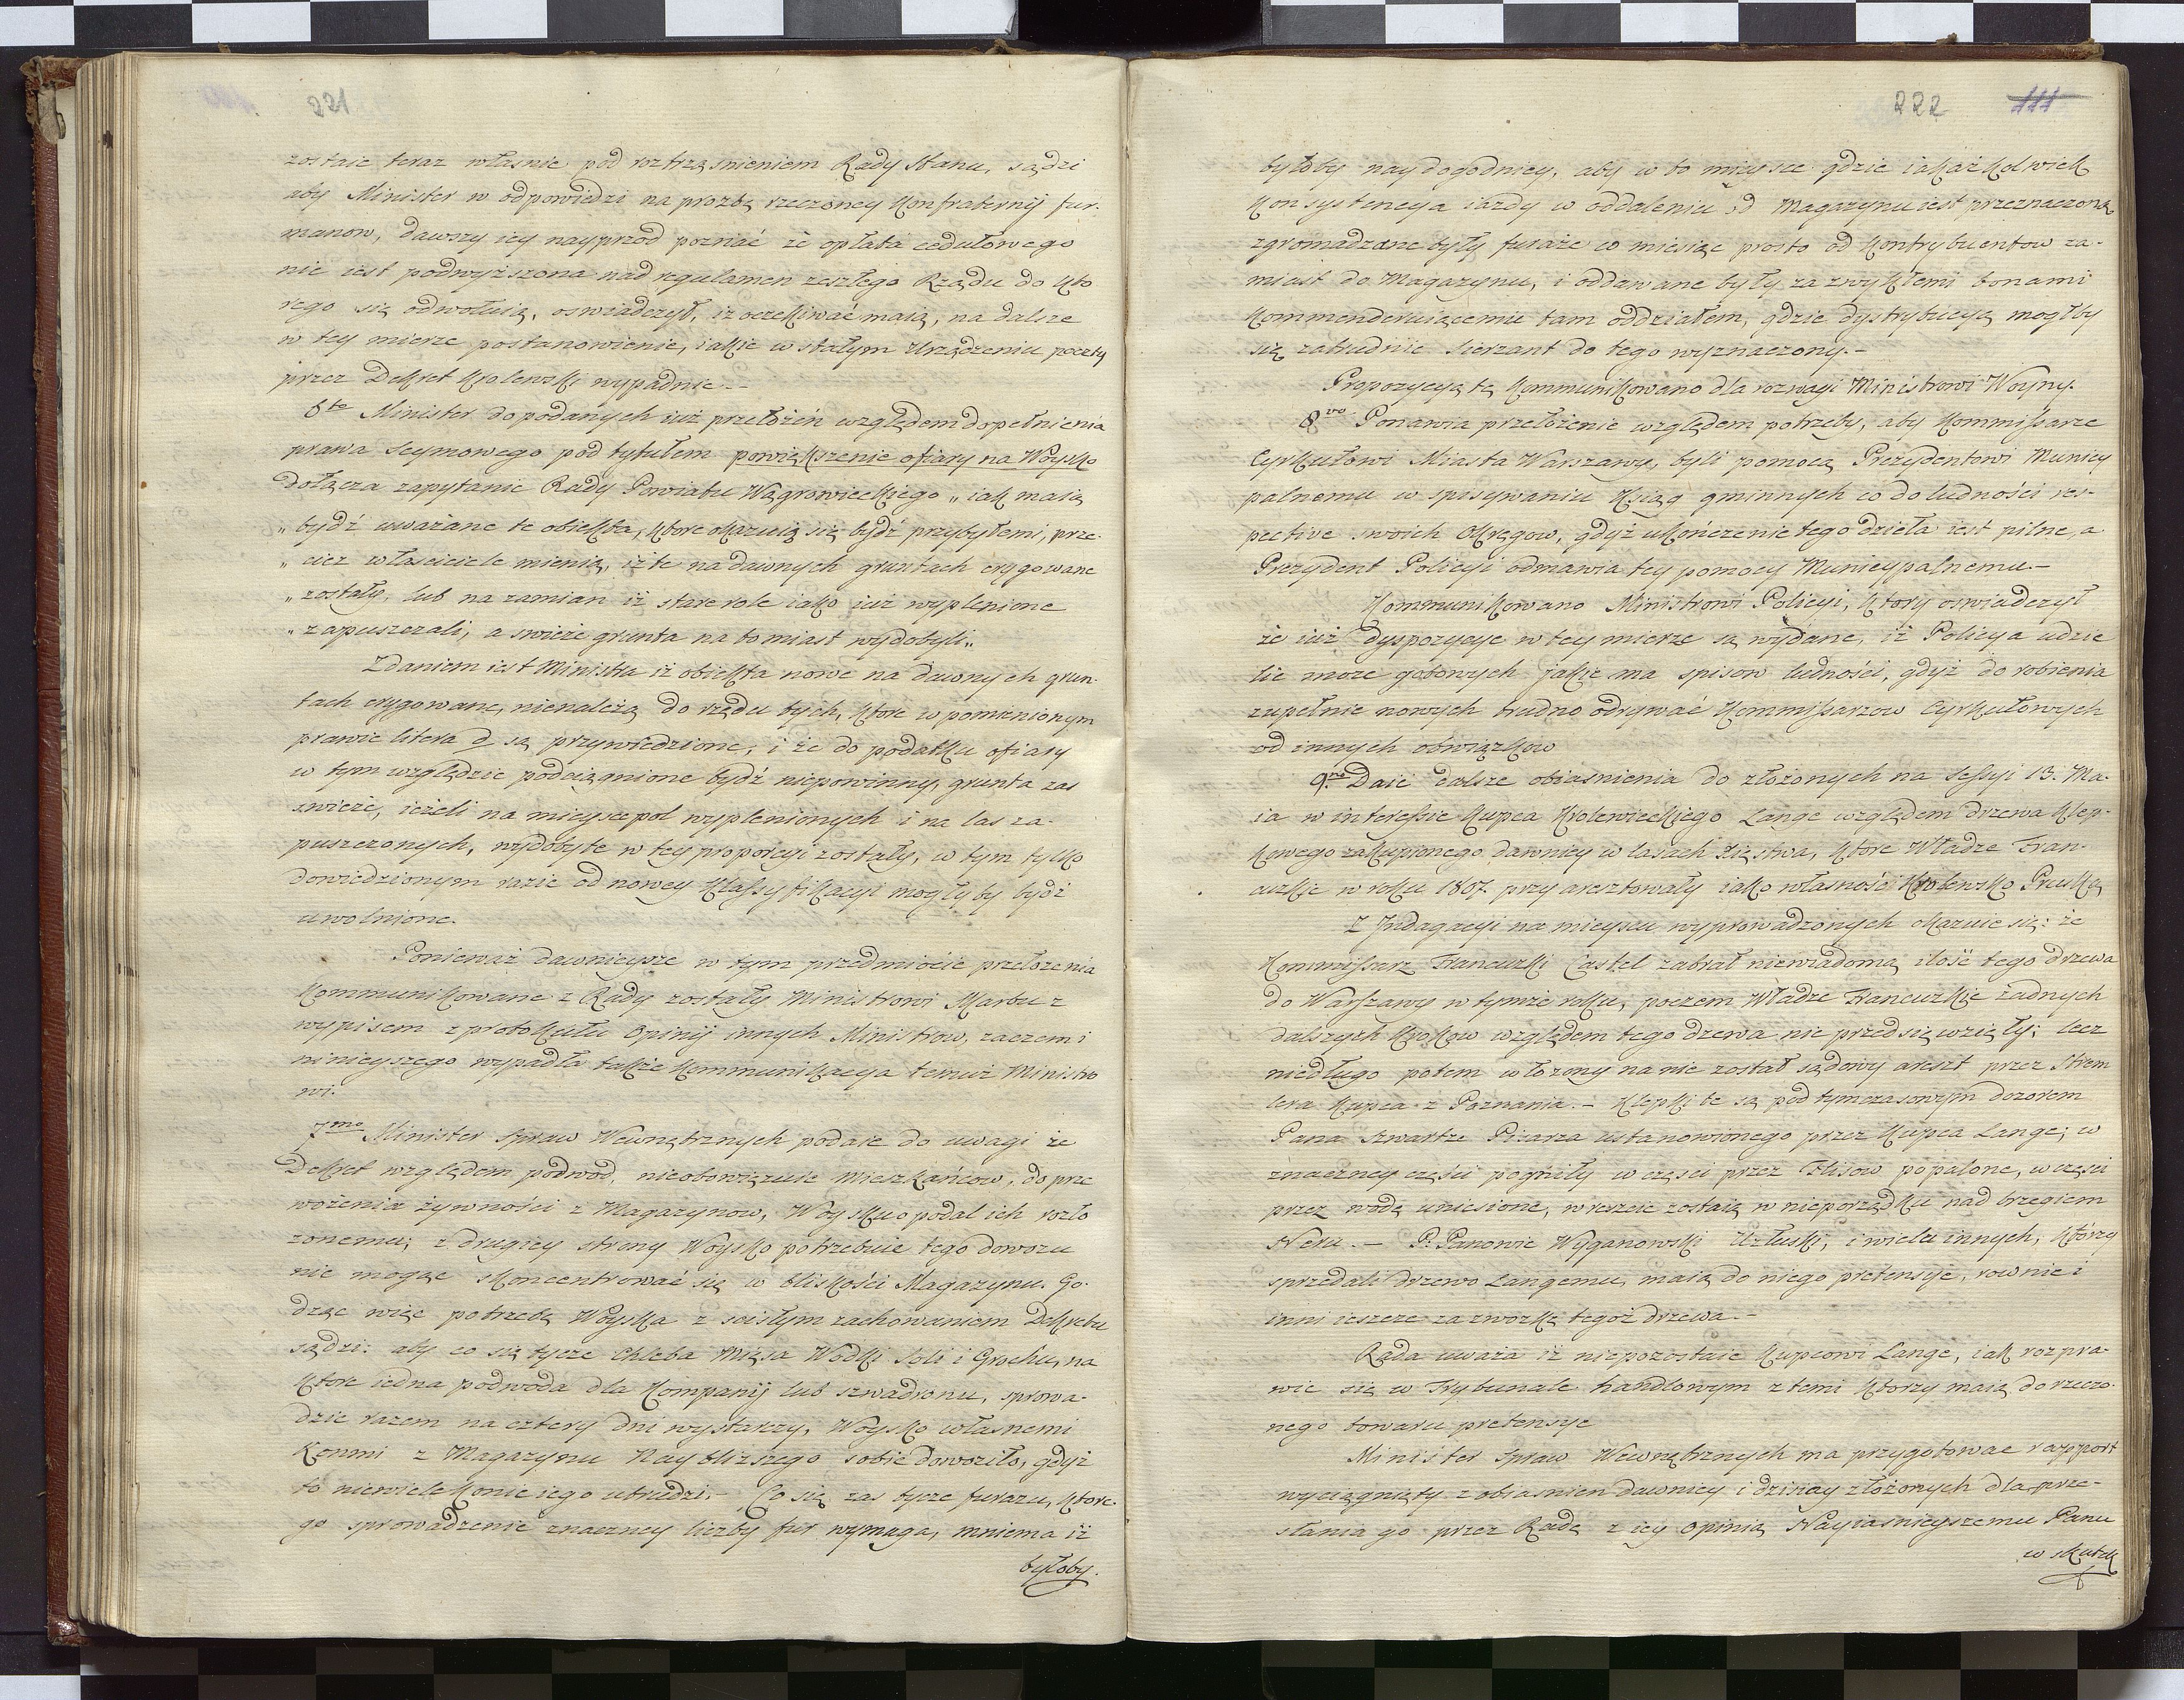 221
zostaie teraz własnie pod roztrząsnieniem Rady Stanu, sądzi
aby Minister w odpowiedzi na prozbę rzeczoney Konfraternij fur-
manow, dawszy iey nayprzod poznać że opłata cedułowego
nie iest podwyższona nad regulamen zeszłego Rządu do kto
rego się odwołuią, oswiadczył, iż oczekiwać maią, na dalsze
w tey mierze postanowienie, iakie w stałym Urządzeniu poczty
przez Dekret Krolewski wypadnie.-
6to Minister do podanych iuż przełożeń względem dopełnienia
prawa Seymowego pod tytułem powiększenie ofiary na Woysko
dołącza zapytanie Rady Powiatu Wągrowieckiego „ iak maią
„ bydź uważane te obiekta, ktore okazuią się bydź przybyłemi, prze-
„ ciez własciciele mienią, iż te na dawnych gruntach erygowane
„ zostały, lub na zamian iż stare role iako iuż wyplenione
„ zapuszczali, a swieże grunta na to miast wydobyli „
Zdaniem iest Ministra iż obiekta nowe na dawnych grun-
tach erygowane, nienależą do rzędu tych, ktore w pomienionym
prawie litera d są przywiedzione, i że do podatku ofiary
w tym względzie podciągnione bydź niepowinny, grunta zas
swieże, ieżeli na mieysce pol wyplenionych i na las za-
puszczonych, wydobyte w tey proporcyi zostały, w tym tylko
dowiedzionym razie od nowey klassyfikacyi mogłyby bydź
uwolnione.
Ponieważ dawnieysze w tym przedmiocie przełożenia
kommunikowane z Rady zostały Ministrowi Skarbu z
wypisem z protokułu Opinij innych Ministrow, zaczem i
ninieyszego wypadła takze kommunikacya temuż Ministro
wi.
7mo Minister Spraw Wewnętrznych podaie do uwagi że
Dekret względem podwod, nieobowiązuie mieszkańcow, do prze
wożenia żywności z Magazynow, Woysku opodal ich rozło
żonemu; z drugiey strony Woysko potrzebuie tego dowozu
nie mogąc skoncentrować się w bliskości Magazynu. Go-
dząc więc potrzebę Woyska z scisłym zachowaniem Dekretu
sądzi: aby co się tycze Chleba Mięsa Wodki Soli i Grochu, na
ktore iedna podwoda dla Kompanij lub szwadronu, sprowa-
dzic razem na cztery dni wystarczy, Woysko własnemi
Konmi z Magazynu Naybliższego sobie dowoziło, gdyż
to niewiele konie iego utrudzi.- Co się zas tycze furażu, ktore-
go sprowadzenie znaczney liczby fur wymaga, mniema iż
byłoby.
222 111
byłoby naydogodniey, aby w to mieysce gdzie iakażkolwiek
konsystencya iazdy w oddaleniu od Magazynu iest przeznaczoną
zgromadzane były furaże co miesiąc prosto od Kontrybuentow za-
miast do Magazynu, i oddawane były za zwykłemi bonami
kommenderuiącemu tam oddziałem, gdzie dystrybucyą mogłby
się zatrudnic Sierzant do tego wyznaczony.-
Propozycyą tę kommunikowano dla rozwagi Ministrowi Woyny.
8vo Ponawia przełożenie względem potrzeby, aby Kommissarze
Cyrkułowi Miasta Warszawy, byli pomocą Prezydentowi Municy
palnemu w spisywaniu Ksiąg gminnych co do ludności res-
pective swoich Okręgow, gdyż ukończenie tego dzieła iest pilne, a
Prezydent Policyi odmawia tey pomocy Municypalnemu.-
Kommunikowano Ministrowi Policyi, ktory oswiadczył
że iuż dyspozycye w tey mierze są wydane, iż Policya udzie
lic może gotowych jakie ma spisow ludności, gdyż do robienia
zupełnie nowych trudno odrywać Kommissarzow Cyrkułowych
od innych obwiązkow
9no Daie dalsze obiasnienia do złożonych na Sessyi 13. Ma-
ia w interessie Kupca Krolewieckiego Lange względem drzewa klep-
kowego zakupionego dawniey w lasach Xięstwa, ktore Władze Fran-
cuzkie w roku 1807 przyaresztowały iako własność Krolewsko Pruską
Z Indagacyi na mieyscu wyprowadzonych okazuie się: że
Kommissarz Francuzki Castel zabrał niewiadomą ilość tego drzewa
do Warszawy w tymże roku, poczem Władze Francuzkie żadnych
dalszych krokow względem tego drzewa nie przedsięwzięły; lecz
niedługo potem włożony na nie został sądowy areszt przez Strem
lera Kupca z Poznania.- Klepki te są pod tymczasowym dozorem
Pana Szwartz Pisarza ustanowionego przez Kupca Lange; w
znaczney części pogniły w części przez Flisow popalone, w części
przez wodę uniesione, wreszcie zostaią w nieporządku nad brzegiem
Neru.- P. Panowie Wyganowski Użłuski, i wielu innych, którzy
sprzedali drzewo Langemu, maią do niego pretensye, rownie i
inni ieszcze za zwozkę tegoż drzewa.-
Rada uważa iż niepozostaie Kupcowi Lange, iak rozpra-
wic się w Trybunale handlowym z temi ktorzy maią do rzeczo-
nego towaru pretensye
Minister Spraw Wewnętrznych ma przygotowac rapport
wyciągnięty z obiasnien dawniey i dzisiay złożonych dla prze-
słania go przez Radę z iey Opinią Nayiasnieyszemu Panu
w skutek